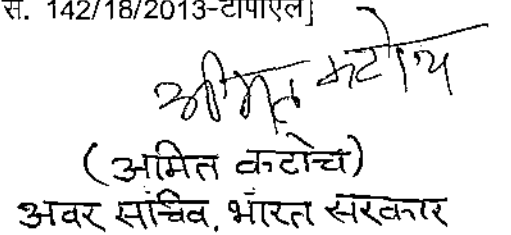 स. 142/18/2013-टीपीएल]
अमित कटोच
(अमित कटोच)
अवर सचिव, भारत सरकार